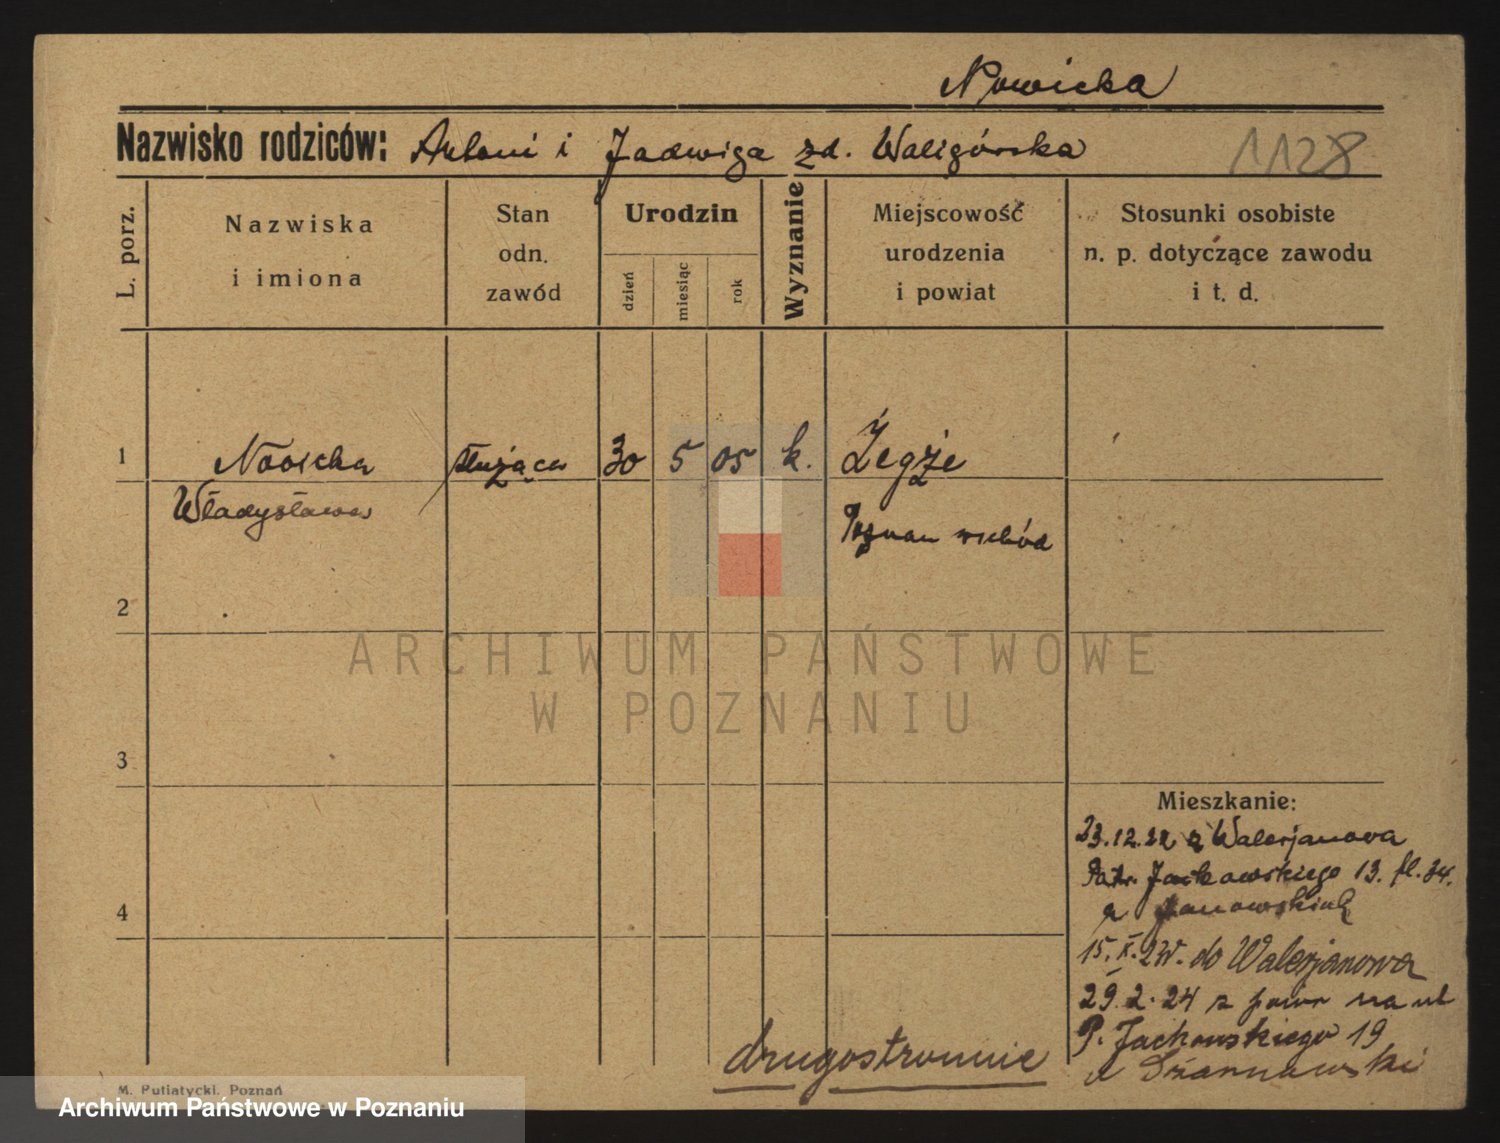 Nowicka
Nazwisko rodziców: Antoni i Jadwiga zd. Waligórska 1128
L. porz.
Nazwiska
i imiona
Stan
odn.
zawód
Urodzin
dzień
miesiąc
rok
Wyznanie
Miejscowość
urodzenia
i powiat
Stosunki osobiste
n. p. dotyczące zawodu
i t. d.
1 Nowicka służąca 30 5 05 k. Żegże
Władysława
Poznan wschód
2
3
4
Mieszkanie:
23.12.22 z Walerjanowa
Patr. Jackowskiego 13. fl. 34.
15. X. do Walerjanowa
29.2.24 z powr na ul
P. Jackowskiego 19
u
drugostronnie
M. Putiatycki, Poznań
ARCHIWUM PAŃSTWOWE
W POZNANIU
Archiwum Państwowe w Poznaniu